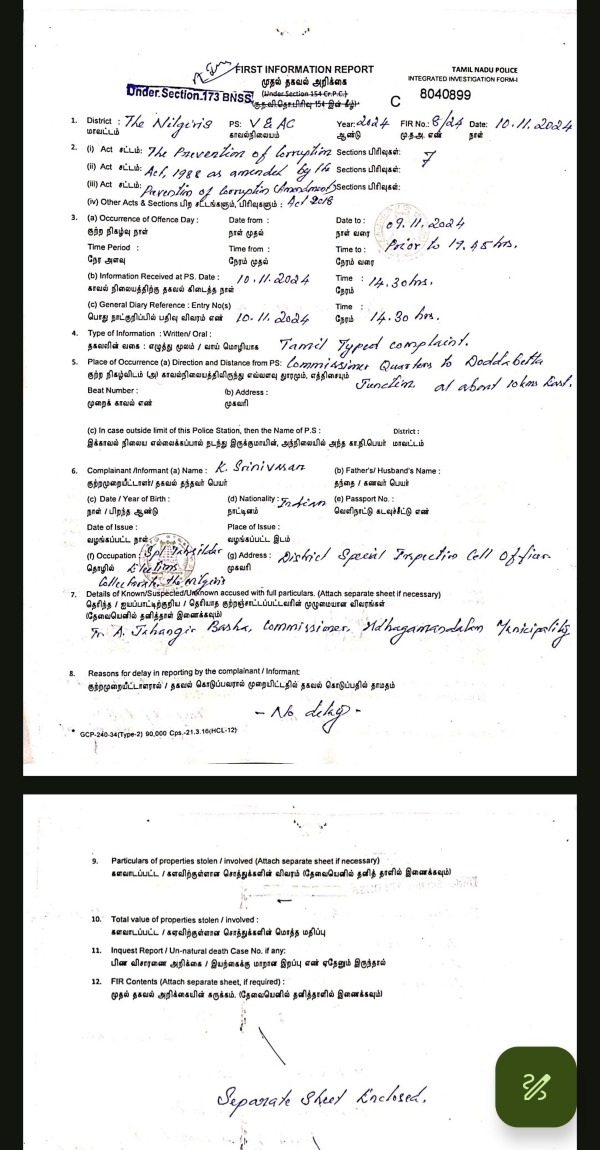 FIRST INFORMATION REPORT
TAMIL NADU POLICE
முதல் தகவல் அறிக்கை
INTEGRATED INVESTIGATION FORM-I
Under.Section.173 BNSS
(Under Section 154 Cr.P.C.)
(கு.ந.வி.தொ.பிரிவு 154 இன் கீழ்)
C 8040899
1. District : The Nilgiris PS: V & AC Year: 2024 FIR No.: 8/24 Date: 10.11.2024
மாவட்டம் காவல்நிலையம் ஆண்டு மு.த.அ. எண் நாள்
2. (i) Act சட்டம்: The Prevention of Corruption Sections பிரிவுகள்: 7
(ii) Act சட்டம்: Act, 1988 as amended by the Sections பிரிவுகள்:
(iii) Act சட்டம்: Prevention of Corruption (Amendment) Sections பிரிவுகள்:
(iv) Other Acts & Sections பிற சட்டங்களும், பிரிவுகளும் : Act 2018
3. (a) Occurrence of Offence Day : Date from : Date to : 09.11.2024
குற்ற நிகழ்வு நாள் நாள் முதல் நாள் வரை
Time Period : Time from : Time to : Prior to 19.45 hrs.
நேர அளவு நேரம் முதல் நேரம் வரை
(b) Information Received at PS. Date : 10.11.2024 Time : 14.30 hrs.
காவல் நிலையத்திற்கு தகவல் கிடைத்த நாள் நேரம்
(c) General Diary Reference : Entry No(s) Time :
பொது நாட்குறிப்பில் பதிவு விவரம் எண் 10.11.2024 நேரம் 14.30 hrs.
4. Type of Information : Written/ Oral :
தகவலின் வகை : எழுத்து மூலம் / வாய் மொழியாக Tamil Typed complaint.
5. Place of Occurrence (a) Direction and Distance from PS: Commissioner Quarters to Doddabetta
குற்ற நிகழ்விடம் (அ) காவல்நிலையத்திலிருந்து எவ்வளவு தூரமும், எத்திசையும் Junction at about 10 kms East.
Beat Number : (b) Address :
முறைக் காவல் எண் முகவரி
(c) In case outside limit of this Police Station, then the Name of P.S : District :
இக்காவல் நிலைய எல்லைக்கப்பால் நடந்து இருக்குமாயின், அந்நிலையில் அந்த கா.நி.பெயர் மாவட்டம்
6. Complainant /Informant (a) Name : K. Srinivasan (b) Father's/ Husband's Name :
குற்றமுறையீட்டாளர்/ தகவல் தந்தவர் பெயர் தந்தை / கணவர் பெயர்
(c) Date / Year of Birth : (d) Nationality : Indian (e) Passport No. :
நாள் / பிறந்த ஆண்டு நாட்டினம் வெளிநாட்டு கடவுச்சீட்டு எண்
Date of Issue : Place of Issue :
வழங்கப்பட்ட நாள் வழங்கப்பட்ட இடம்
(f) Occupation : Spl Tahsildar (g) Address : District Special Inspection Cell Officer
தொழில் Elections முகவரி
Collectorate the Nilgiris
7. Details of Known/Suspected/Unknown accused with full particulars. (Attach separate sheet if necessary)
தெரிந்த / ஐயப்பாட்டிற்குரிய / தெரியாத குற்றஞ்சாட்டப்பட்டவரின் முழுமையான விவரங்கள்
(தேவையெனில் தனித்தாள் இணைக்கவும்)
Tr. A. Jahangir Basha, Commissioner, Udhagamandalam Municipality
8. Reasons for delay in reporting by the complainant / Informant:
குற்றமுறையீட்டாளரால் / தகவல் கொடுப்பவரால் முறையிட்டதில் தகவல் கொடுப்பதில் தாமதம்
- No delay -
* GCP-240-34(Type-2) 90,000 Cps.-21.3.16(HCL-12)
9. Particulars of properties stolen / involved (Attach separate sheet if necessary)
களவாடப்பட்ட / களவிற்குள்ளான சொத்துக்களின் விவரம் (தேவையெனில் தனித் தாளில் இணைக்கவும்)
10. Total value of properties stolen / involved :
களவாடப்பட்ட / களவிற்குள்ளான சொத்துக்களின் மொத்த மதிப்பு
11. Inquest Report / Un-natural death Case No. if any:
பிண விசாரணை அறிக்கை / இயற்கைக்கு மாறான இறப்பு எண் ஏதேனும் இருந்தால்
12. FIR Contents (Attach separate sheet, if required) :
முதல் தகவல் அறிக்கையின் சுருக்கம். (தேவையெனில் தனித்தாளில் இணைக்கவும்)
Separate Sheet Enclosed.